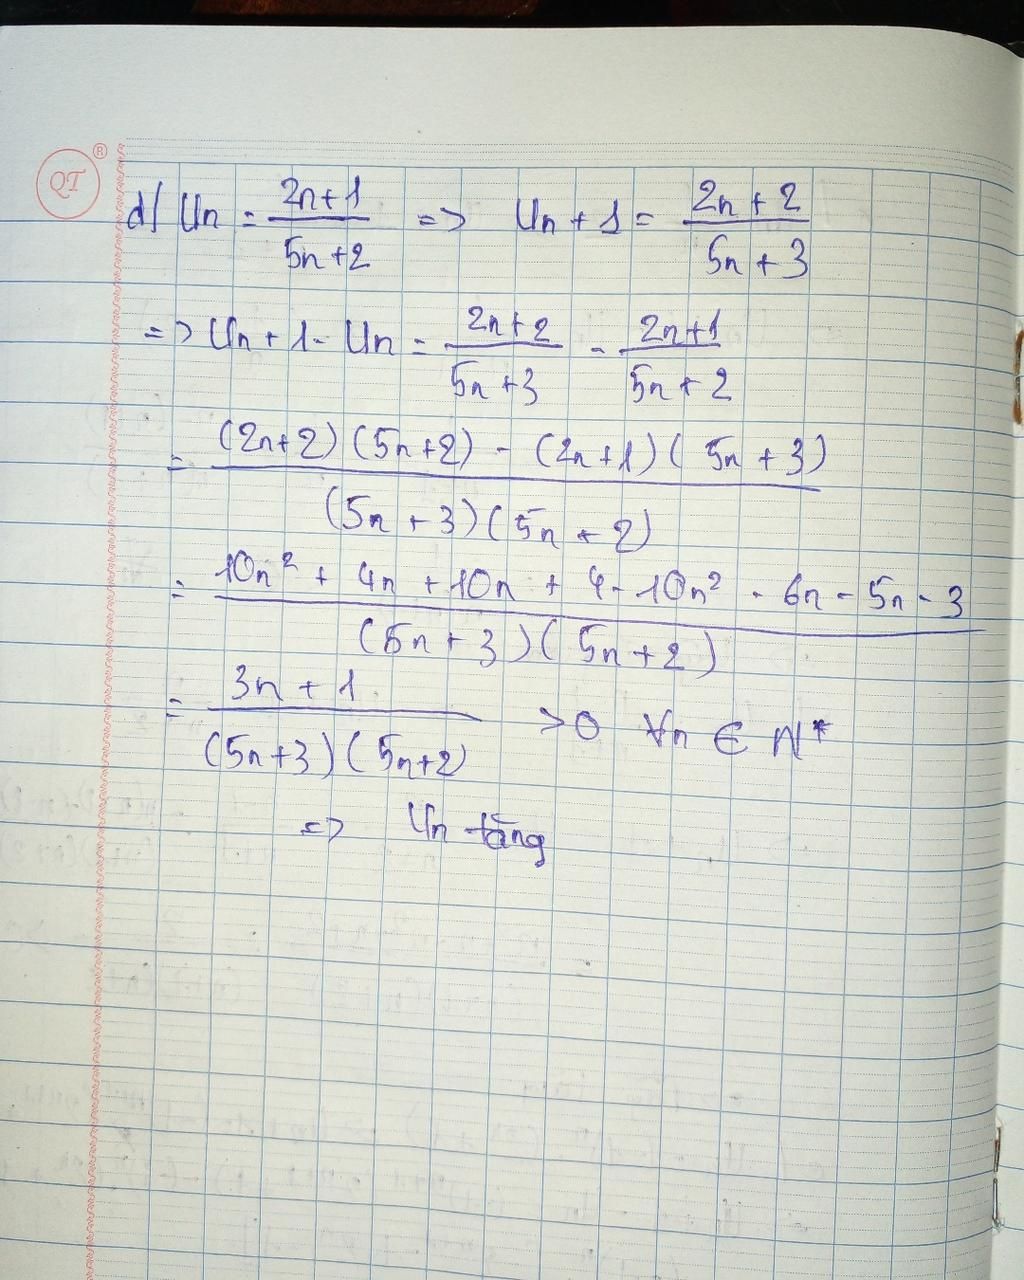 QT ®
d/ Un = (2n+1)/(5n+2) => Un + 1 = (2n + 2)/(5n + 3)
=> Un + 1 - Un = (2n+2)/(5n+3) - (2n+1)/(5n+2)
= ((2n+2)(5n+2) - (2n+1)(5n+3))/((5n+3)(5n+2))
= (10n² + 4n + 10n + 4 - 10n² - 6n - 5n - 3)/((5n+3)(5n+2))
= (3n + 1)/((5n+3)(5n+2)) > 0 ∀n ∈ N*
=> Un tăng